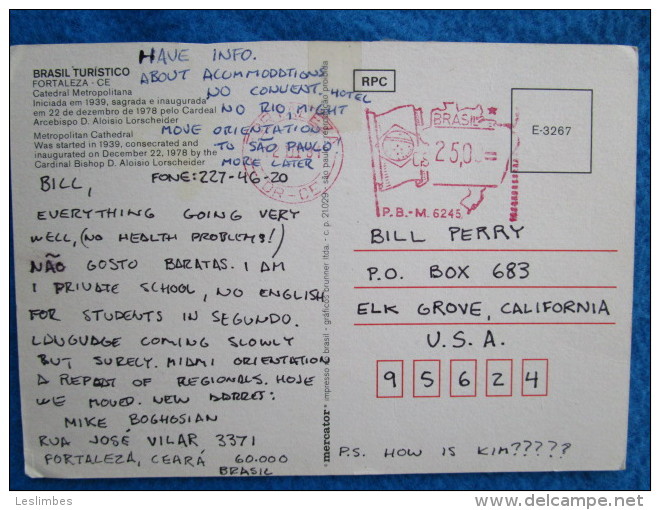 BRASIL TURÍSTICO
FORTALEZA - CE
Catedral Metropolitana
Iniciada em 1939, sagrada e inaugurada
em 22 de dezembro de 1978 pelo Cardeal
Arcebispo D. Aloisio Lorscheider
Metropolitan Cathedral
Was started in 1939, consecrated and
inaugurated on December 22, 1978 by the
Cardinal Bishop D. Aloisio Lorscheider
HAVE INFO.
ABOUT ACOMMODATIONS
NO CONVENT. HOTEL
NO RIO, MIGHT
MOVE ORIENTATION
TO SÃO PAULO
MORE LATER
FONE: 227-46-20
BILL,
EVERYTHING GOING VERY
WELL, (NO HEALTH PROBLEMS!)
NÃO GOSTO BARATAS. I AM
I PRIVATE SCHOOL, NO ENGLISH
FOR STUDENTS IN SEGUNDO.
LANGUAGE COMING SLOWLY
BUT SURELY. MIAMI ORIENTATION
A REPEAT OF REGIONALS. HOJE
WE MOVED. NEW ADDRESS:
MIKE BOGHOSIAN
RUA JOSÉ VILAR 3371
FORTALEZA, CEARÁ 60.000
BRASIL
mercator® impresso no brasil - gráficos brunner ltda. - c. p. 21.029 - são paulo - reprodução proibida
RPC
BRASIL
25,0
P.B.-M. 6245
DR-CE
E-3267
BILL PERRY
P.O. BOX 683
ELK GROVE, CALIFORNIA
U.S.A.
95624
P.S. HOW IS KIM?????
Leslimbes
delcampe.net